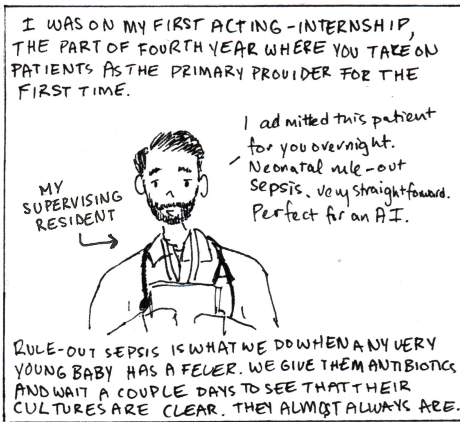 I WAS ON MY FIRST ACTING-INTERNSHIP,
THE PART OF FOURTH YEAR WHERE YOU TAKE ON
PATIENTS AS THE PRIMARY PROVIDER FOR THE
FIRST TIME.
I admitted this patient
for you overnight.
Neonatal rule-out
sepsis, very straightforward.
Perfect for an AI.
MY
SUPERVISING
RESIDENT
RULE-OUT SEPSIS IS WHAT WE DO WHEN ANY VERY
YOUNG BABY HAS A FEVER. WE GIVE THEM ANTIBIOTICS
AND WAIT A COUPLE DAYS TO SEE THAT THEIR
CULTURES ARE CLEAR. THEY ALMOST ALWAYS ARE.